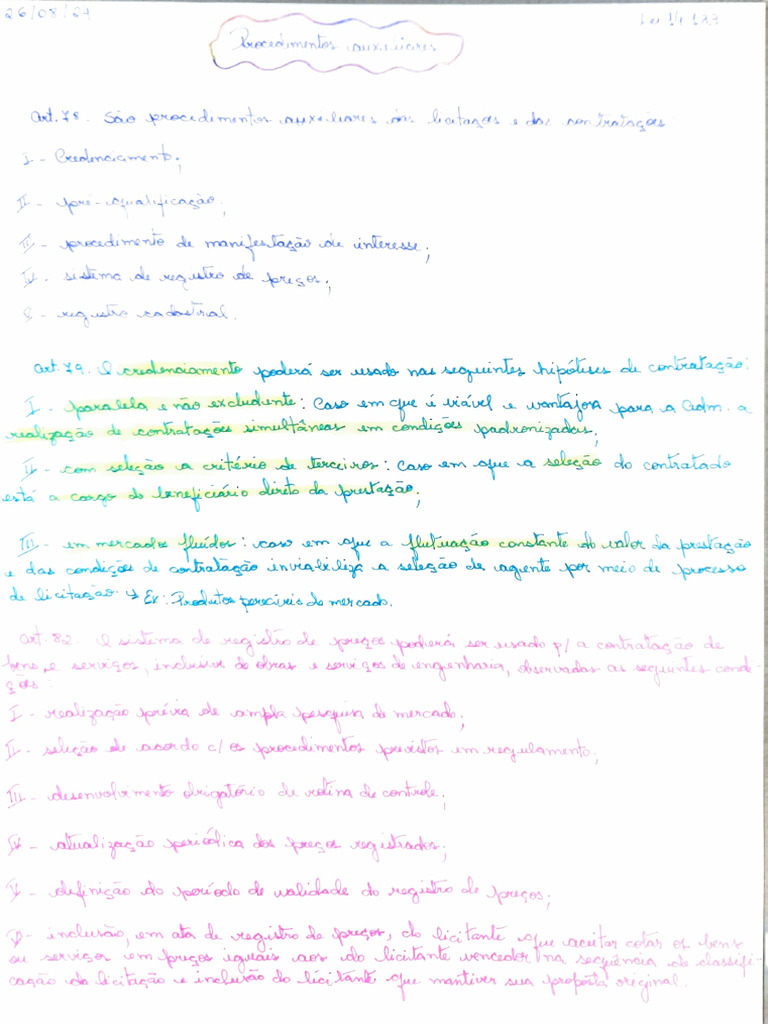 26/08/24
Lei 14.133
Procedimentos auxiliares
Art. 78. São procedimentos auxiliares das licitações e das contratações:
I - Credenciamento;
II - pré-qualificação;
III - procedimento de manifestação de interesse;
IV - sistema de registro de preços;
V - registro cadastral.
Art. 79. O credenciamento poderá ser usado nas seguintes hipóteses de contratação:
I - paralela e não excludente: Caso em que é viável e vantajosa para a Adm. a
realização de contratações simultâneas em condições padronizadas;
II - com seleção a critério de terceiros: caso em que a seleção do contratado
está a cargo do beneficiário direto da prestação;
III - em mercados fluídos: caso em que a flutuação constante do valor da prestação
e das condições de contratação inviabiliza a seleção de agente por meio de processo
de licitação. ↳ Ex: Produtos perecíveis do mercado.
Art. 82. O sistema de registro de preços poderá ser usado p/ a contratação de
bens e serviços, inclusive de obras e serviços de engenharia, observadas as seguintes condi-
ções:
I - realização prévia de ampla pesquisa de mercado;
II - seleção de acordo c/ os procedimentos previstos em regulamento;
III - desenvolvimento obrigatório de rotina de controle;
IV - atualização periódica dos preços registrados;
V - definição do período de validade do registro de preços;
VI - inclusão, em ata de registro de preços, do licitante que aceitar cotar os bens
ou serviços em preços iguais aos do licitante vencedor na seqüência de classifi-
cação da licitação e inclusão do licitante que mantiver sua proposta original.